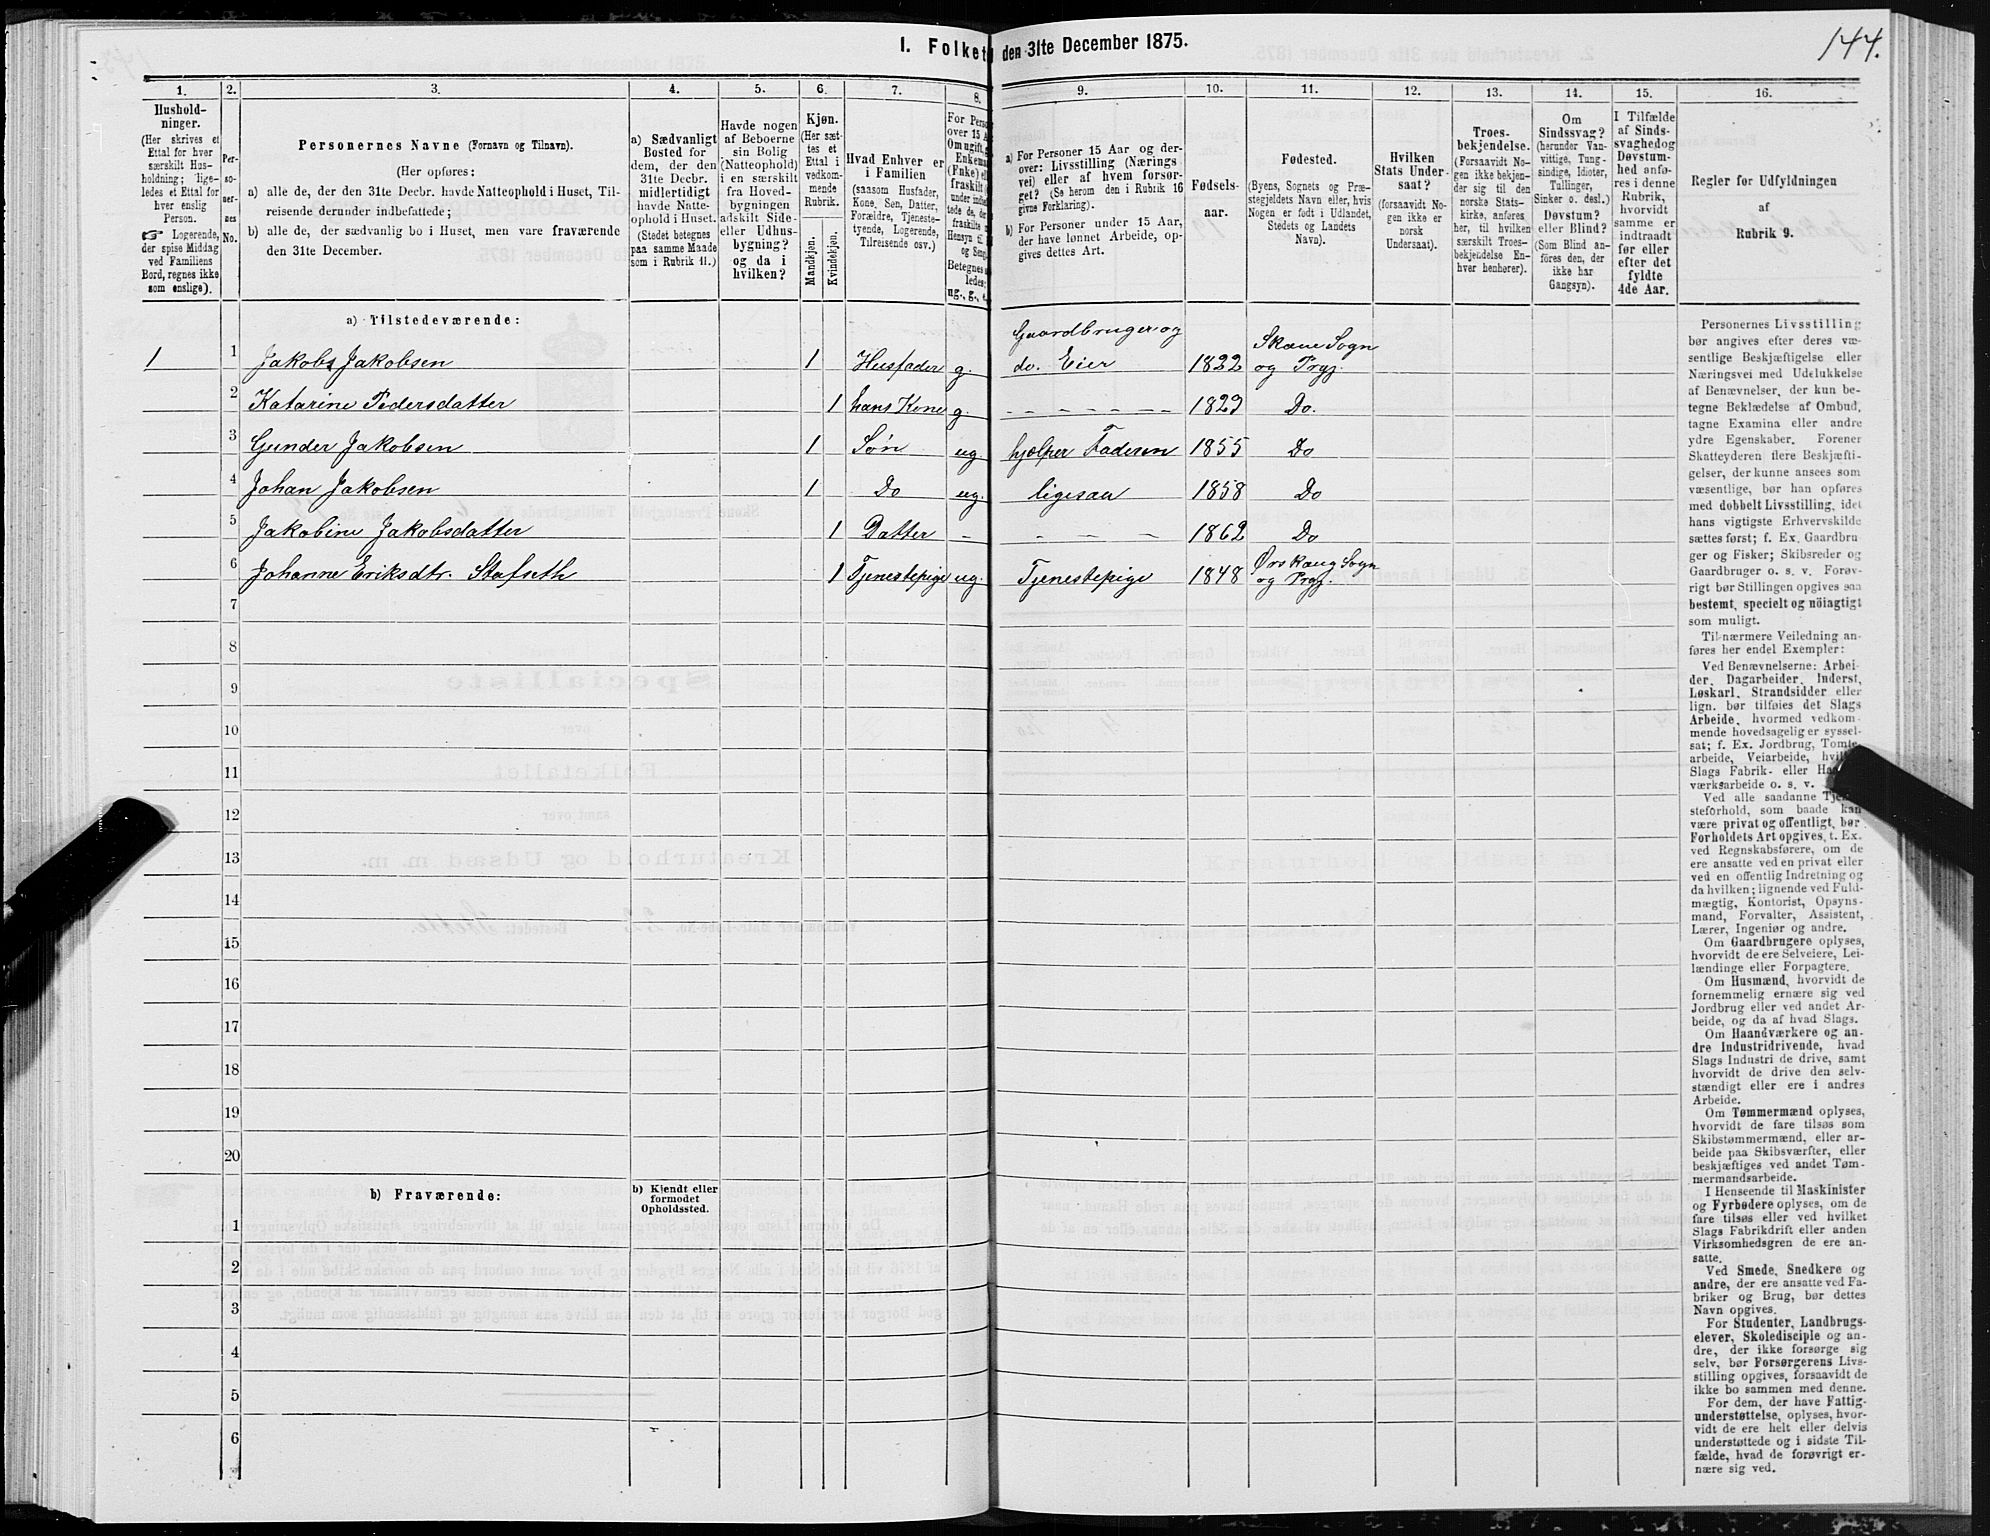 144.
I. Folket den 31te December 1875.
1. 2. 3. 4. 5. 6. 7. 8. 9. 10. 11. 12. 13. 14. 15. 16.
Hushold-
ninger.
(Her skrives et
Ettal for hver
særskilt Hus-
holdning; lige-
ledes et Ettal for
hver enslig
Person.
☞ Logerende,
der spise Middag
ved Familiens
Bord, regnes ikke
som enslige).
Per-
so-
ner-
nes
No.
Personernes Navne (Fornavn og Tilnavn).
(Her opføres:
a) alle de, der den 31te Decbr. havde Natteophold i Huset, Til-
reisende derunder indbefattede;
b) alle de, der sædvanlig bo i Huset, men vare fraværende
den 31te December.
a) Sædvanligt
Bosted for
dem, der den
31te Decbr.
midlertidigt
havde Natte-
ophold i Huset.
(Stedet betegnes
paa samme Maade
som i Rubrik 11.)
Havde nogen
af Beboerne
sin Bolig
(Natteophold)
i en særskilt
fra Hoved-
bygningen
adskilt Side-
eller Udhus-
bygning?
og da i
hvilken?
Kjøn.
(Her sæt-
tes et
Ettal i
vedkom-
mende
Rubrik.
Mandkjøn.
Kvindekjøn.
Hvad Enhver er
i Familien
(saasom Husfader,
Kone, Søn, Datter,
Forældre, Tjeneste-
tyende, Logerende,
Tilreisende osv.)
For Perso
over 15 Aa
Om ugift, g
Enkema
(Enke) el
fraskilt
under indbef
tede de, de
fraskilte
Hensyn til
og Seng
Betegnes
ledes;
ug., g., e.
a) For Personer 15 Aar og der-
over: Livsstilling (Nærings
vei) eller af hvem forsør-
get? (Se herom den i Rubrik 16
givne Forklaring).
b) For Personer under 15 Aar,
der have lønnet Arbeide, op-
gives dettes Art.
Fødsels-
aar.
Fødested.
(Byens, Sognets og Præ-
stegjeldets Navn eller, hvis
Nogen er født i Udlandet,
Stedets og Landets
Navn).
Hvilken
Stats Under-
saat?
(forsaavidt No-
gen ikke er
norsk
Undersaat).
Troes-
bekjendelse.
(Forsaavidt No-
gen ikke bekjen-
der sig til den
norske Stats-
kirke, anføres
her, til hvilken
særskilt Troes-
bekjendelse En-
hver henhører).
Om
Sindssvag?
(herunder Van-
vittige, Tung-
sindige, Idioter,
Tullinger,
Sinker o. desl.)
Døvstum?
eller Blind?
(Som Blind an-
føres den, der
ikke har
Gangsyn).
I Tilfælde
af Sinds-
svaghed og
Døvstum-
hed anfø-
res i denne
Rubrik,
hvorvidt
samme er
indtraadt
før eller
efter det
fyldte
4de Aar.
Regler før Udfyldningen
af
Rubrik 9.
a) Tilstedeværende:
1 1 Jakobs Jakobsen 1 Husfader g. Gaardbruger og do. Eier 1822 Skoue Sogn og Prgj.
2 Katarine Pedersdatter 1 hans Kone g. - - - - - - 1823 Do.
3 Gunder Jakobsen 1 Søn ug. hjælper Faderen 1855 Do
4 Johan Jakobsen 1 Do ug. ligesaa 1858 Do
5 Jakobine Jakobsdatter 1 Datter - - - - 1862 Do
6 Johanne Eriksdtr. Stafseth 1 Tjenestepige ug. Tjenestepige 1848 Ørskoug Sogn og Prgj.
7
8
9
10
11
12
13
14
15
16
17
18
19
20
b) Fraværende:
b) Kjendt eller
formodet
Opholdssted.
1
2
3
4
5
6
Personernes Livsstilling
bør angives efter deres væ-
sentlige Beskjæftigelse eller
Næringsvei med Udelukkelse
af Benævnelser, der kun be-
tegne Beklædelse af Ombud,
tagne Examina eller andre
ydre Egenskaber. Forener
Skatteyderen flere Beskjæfti-
gelser, der kunne ansees som
væsentlige, bør han opføres
med dobbelt Livsstilling, idet
hans vigtigste Erhvervskilde
sættes først; f. Ex. Gaardbru
ger og Fisker; Skibsreder og
Gaardbruger o. s. v. Forøv-
rigt bør Stillingen opgives saa
bestemt, specielt og nöiagtigt
som muligt.
Til nærmere Veiledning an-
føres her endel Exempler:
Ved Benævnelserne: Arbei-
der, Dagarbeider, Inderst,
Løskarl, Strandsidder eller
lign. bør tilføies det Slags
Arbeide, hvormed vedkom-
mende hovedsagelig er syssel-
sat; f. Ex. Jordbrug, Tomte-
arbeide, Veiarbeide, hvil
Slags Fabrik- eller Ha
værksarbeide o. s. v.
Ved alle saadanne Tje
steforhold, som baade kan
være privat og offentligt, bør
Forholdets Art opgives, t. Ex.
ved Regnskabsførere, om de
ere ansatte ved en privat eller
ved en offentlig Indretning og
da hvilken; lignende ved Fuld-
mægtig, Kontorist, Opsyns-
mand, Forvalter, Assistent,
Lærer, Ingeniør og andre.
Om Gaardbrugere oplyses,
hvorvidt de ere Selveiere, Lei-
lændinge eller Forpagtere.
Om Husmænd, hvorvidt de
fornemmelig ernære sig ved
Jordbrug eller ved andet Ar-
beide, og da af hvad Slags.
Om Haandværkere og an-
dre Industridrivende, hvad
Slags Industri de drive, samt
hvorvidt de drive den selv-
stændigt eller ere i andres
Arbeide.
Om Tømmermænd oplyses,
hvorvidt de fare tilsøs som
Skibstømmermænd, eller ar-
beide paa Skibsværfter, eller
beskjæftiges ved andet Tøm-
mermandsarbeide.
I Henseende til Maskinister
og Fyrbødere oplyses, om de
fare tilsøs eller ved hvilket
Slags Fabrikdrift eller anden
Virksomhedsgren de ere an-
satte.
Ved Smede, Snedkere og
andre, der ere ansatte ved Fa-
briker og Brug, bør dettes
Navn opgives.
For Studenter, Landbrugs-
elever, Skoledisciple og an-
dre, der ikke forsørge sig
selv, bør Forsørgerens Livs-
stilling opgives, forsaavidt de
ikke bo sammen med denne.
For dem, der have Fattig-
understøttelse, oplyses, hvor-
vidt de ere helt eller delvis
understøttede og i sidste Til-
fælde, hvad de forøvrigt er-
nære sig ved.